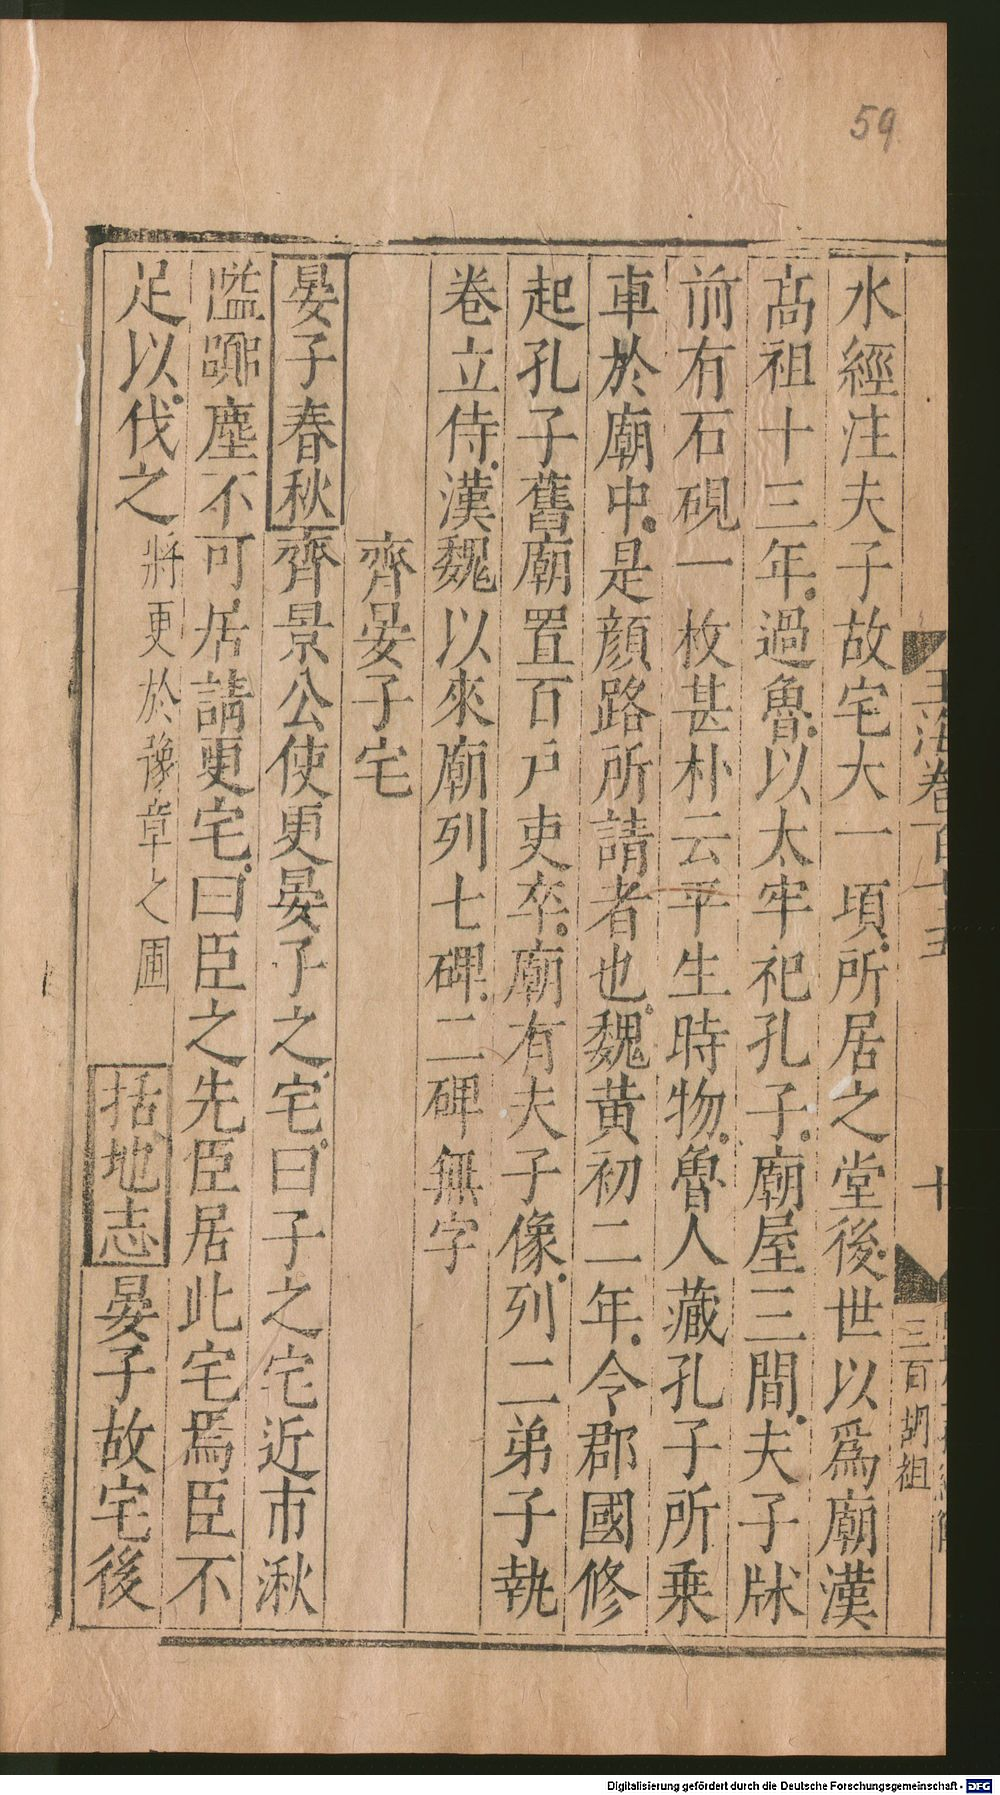 59
水經注夫子故宅大一頃所居之堂後世以爲廟漢
高祖十三年過魯以太牢祀孔子廟屋三間夫子牀
前有石硯一枚甚朴云平生時物魯人藏孔子所乗
車於廟中是顔路所請者也魏黄初二年令郡國修
起孔子舊廟置百戸吏卒廟有夫子像列二弟子執
卷立侍漢魏以來廟列七碑二碑無字
齊晏子宅
晏子春秋齊景公使更晏子之宅曰子之宅近市湫
隘嘂塵不可居請更宅曰臣之先臣居此宅焉臣不
足以伐之將更於豫章之圃括地志晏子故宅後
玉海卷百七十五
十
三百胡祖
Digitalisierung gefördert durch die Deutsche Forschungsgemeinschaft - DFG